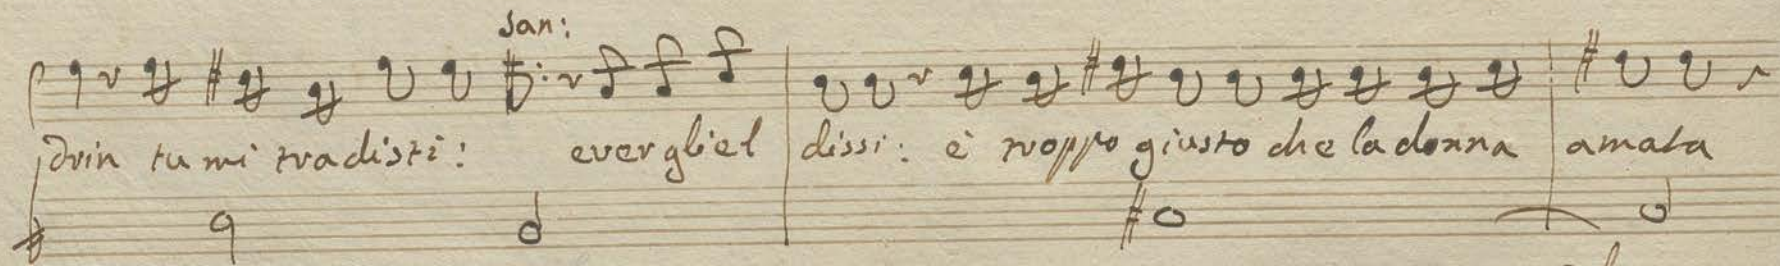 san:
drin tu mi tradisti: e ver gliel dissi: è troppo giusto che la donna amata